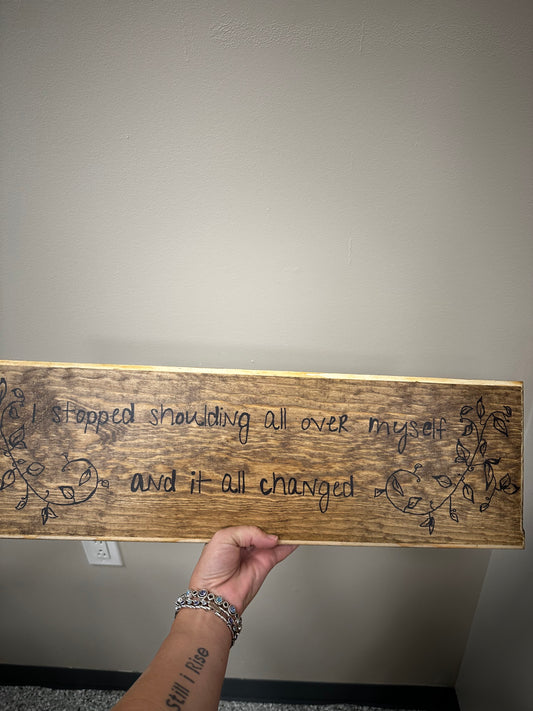 I stopped shoulding all over myself
and it all changed
Still i Rise